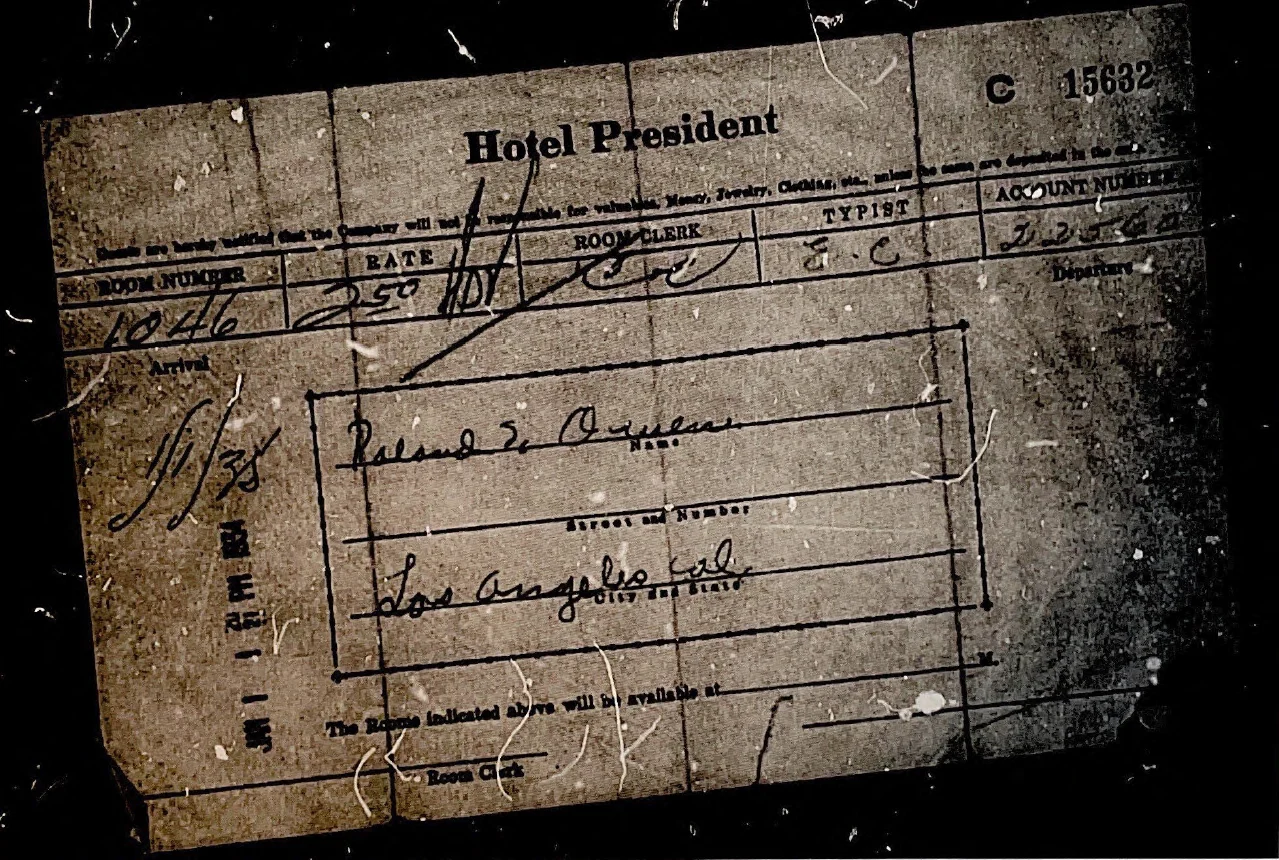 C 15632
Hotel President
Guests are hereby notified that the Company will not be responsible for valuables, Money, Jewelry, Clothing, etc., unless the same are deposited in the
ROOM NUMBER RATE ROOM CLERK TYPIST ACCOUNT NUMBER
1046 250 E. C
Arrival Departure
1/1/35
Roland T. Owen
Name
Street and Number
Los Angeles Cal.
City and State
The Rooms indicated above will be available at M.
Room Clerk
JAN 1